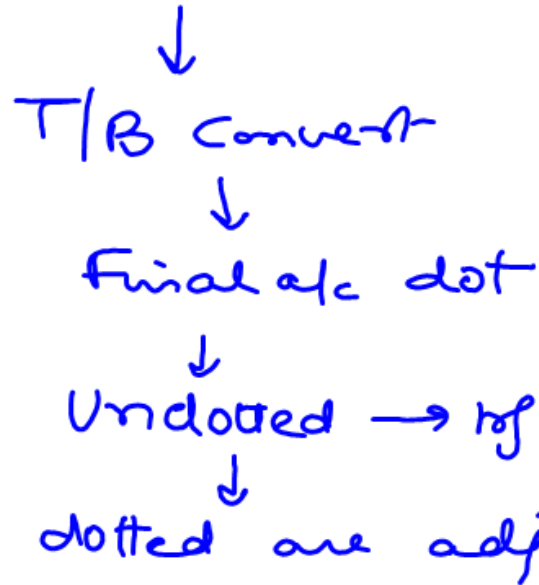 ↓
T/B Convert
↓
Final a/c dot
↓
Undotted → trf
↓
dotted are adj